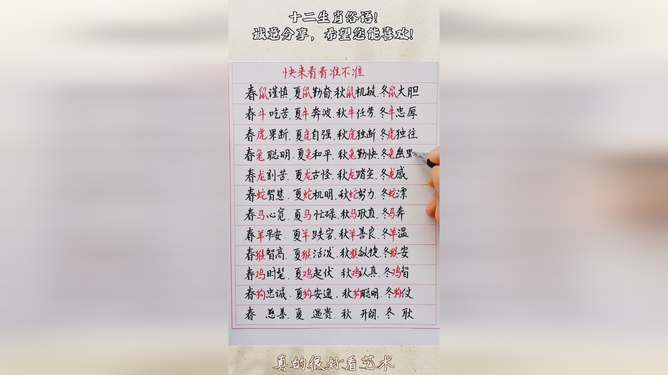 十二生肖俗语!
诚邀分享,希望您能喜欢!
快来看看准不准
春鼠谨慎.夏鼠勤奋.秋鼠机敏.冬鼠大胆
春牛吃苦.夏牛奔波.秋牛任劳.冬牛忠厚
春虎果断.夏虎自强.秋虎独断.冬虎独往
春兔聪明.夏兔和平.秋兔勤快.冬兔幽默
春龙刻苦.夏龙古怪.秋龙踏实.冬龙威
春蛇智慧.夏蛇机明.秋蛇努力.冬蛇漂
春马心宽.夏马忙碌.秋马耿直.冬马奔
春羊平安.夏羊缺客.秋羊善良.冬羊温
春猴智高.夏猴活泼.秋猴敏捷.冬猴安
春鸡时髦.夏鸡起伏 秋鸡认真.冬鸡智
春狗忠诚.夏狗安逸.秋狗聪明.冬狗仗
春 慈善.夏 遇贵 秋 开朗.冬 耿
真的很好看艺术